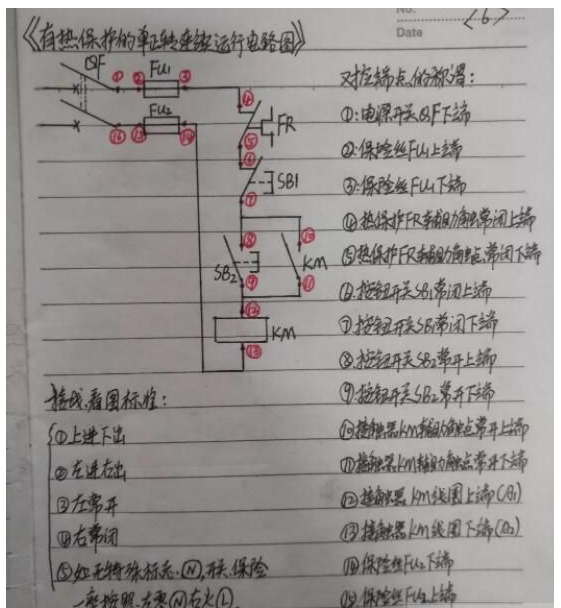 No.
<6>
Date
《有热保护的单正转连续运行电路图》
QF
①
②
Fu1
③
④
FR
⑯
⑮
Fu2
⑭
⑤
⑥
SB1
⑦
⑧
⑩
SB2
KM
⑨
⑪
⑫
KM
⑬
对控端点的称谓:
①:电源开关QF下端
②:保险丝Fu1上端
③:保险丝Fu1下端
④热保护FR辅助触点常闭上端
⑤热保护FR辅助触点常闭下端
⑥.按钮开关SB1常闭上端
⑦.按钮开关SB1常闭下端
⑧:按钮开关SB2常开上端
⑨:按钮开关SB2常开下端
⑩:接触器KM辅助触点常开上端
⑪接触器KM辅助触点常开下端
⑫接触器KM线圈上端(A1)
⑬接触器KM线圈下端(A2)
⑭保险丝Fu2下端
⑮保险丝Fu2上端
接线看图标准:
①上进下出
②左进右出
③左常开
④右常闭
⑤如无特殊标志Ⓝ,开关.保险
一率按照左零Ⓝ右火Ⓛ